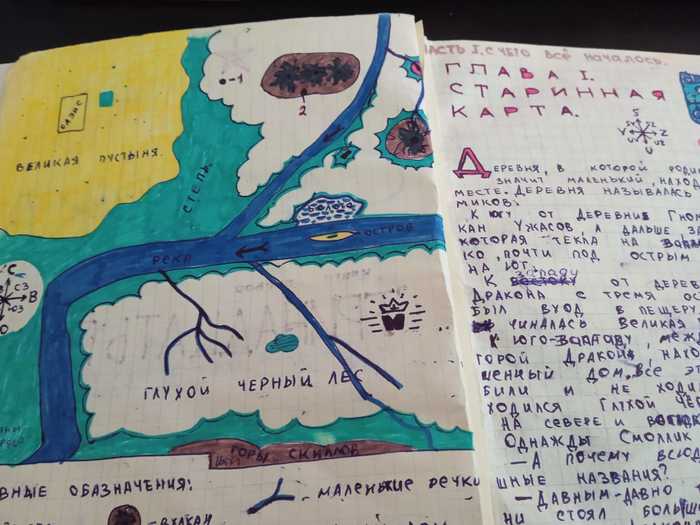 ОАЗИС
ВЕЛИКАЯ ПУСТЫНЯ.
СТЕПЬ.
1
2
БОЛОТО
ОСТРОВ
РЕКА
С
СЗ
В
ГЛУХОЙ ЧЕРНЫЙ ЛЕС
ГОРЫ СКАЛОВ
ВНЫЕ ОБОЗНАЧЕНИЯ:
- МАЛЕНЬКИЕ РЕЧКИ
- ВУЛКАН
ЧАСТЬ I. С ЧЕГО ВСЁ НАЧАЛОСЬ.
ГЛАВА I.
СТАРИННАЯ
КАРТА.
S
SZ
Y
Z
UZ
U
ДЕРЕВНЯ, В КОТОРОЙ РОДИ
ЗНАЧИТ МАЛЕНЬКИЙ, НАХО
МЕСТЕ. ДЕРЕВНЯ НАЗЫВАЛАСЬ
МИКОВ:
К ЮГУ ОТ ДЕРЕВНИ ГНО
КАН УЖАСОВ, А ДАЛЬШЕ ЗА
КОТОРАЯ ТЕКЛА НА ЗАПА
КО, ПОЧТИ ПОД ОСТРЫМ
НА ЮГ.
К ЗАПАДУ ОТ ДЕРЕВ
ДРАКОНА С ТРЕМЯ О
БЫЛ ВХОД В ПЕЩЕРУ
ЧИНАЛАСЬ ВЕЛИКАЯ
К ЮГО-ЗАПАДУ, МЕЖД
ГОРОЙ ДРАКОНА, НАХО
ШЕННЫЙ ДОМ. ВСЕ ЭТ
БИЛИ И НЕ ХОДИ
ХОДИЛСЯ ГЛУХОЙ ЧЕР
НА СЕВЕРЕ И
ОДНАЖДЫ СМОЛЛИК
- А ПОЧЕМУ ВСЮД
ШНЫЕ НАЗВАНИЯ?
- ДАВНЫМ-ДАВНО
НИ СТОЯЛ БОЛЬШ